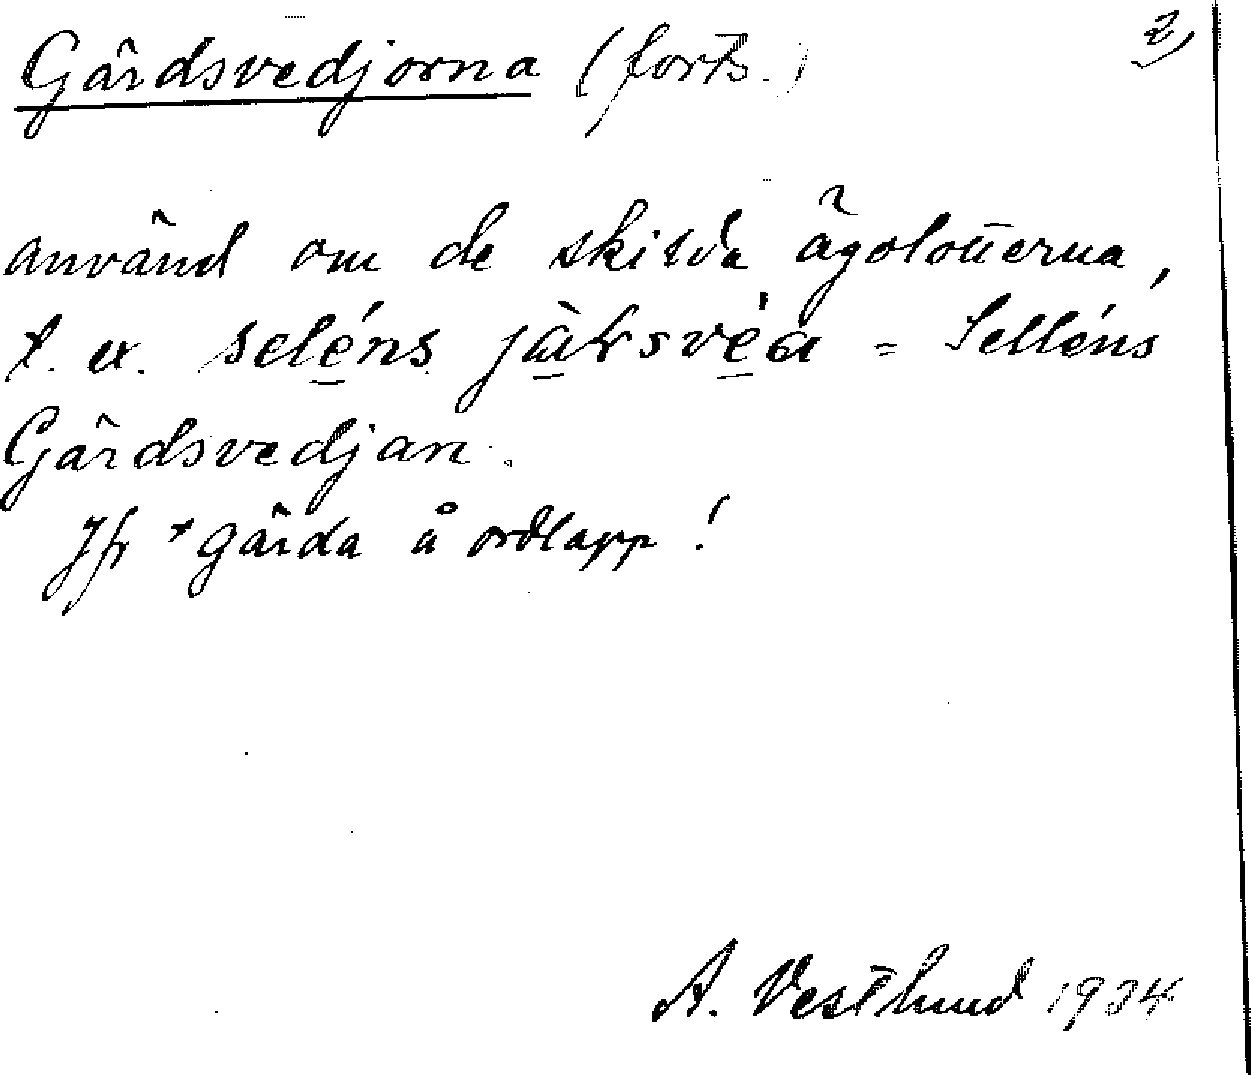 Gärdsvedjorna (forts.) 2)
använd om de skilda ägolotterna,
t. ex. seléns jàksvéa = Selléns
Gärdsvedjan.
Jfr *gärda å ordlapp!
A. Vestlund 1934